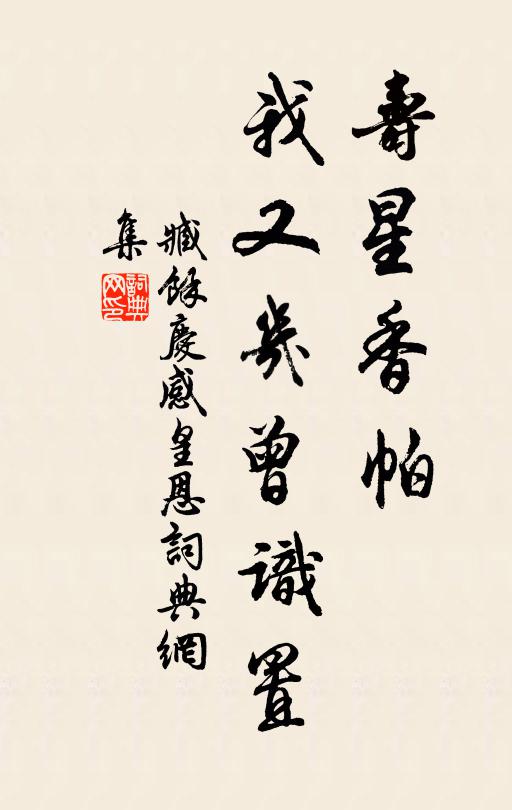 壽星香帕
我又幾曾識置
臧餘慶感皇恩詞典網
集
詞典网印